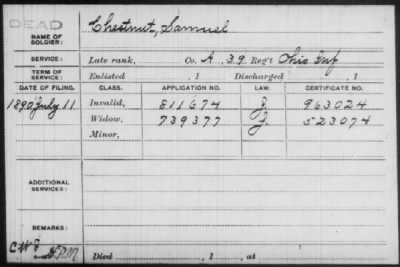 DEAD
NAME OF SOLDIER: Chestnut, Samuel
SERVICE: Late rank, Co. A, 39 Reg't Ohio Inf
TERM OF SERVICE: Enlisted , 1 Discharged , 1
DATE OF FILING. CLASS. APPLICATION NO. LAW. CERTIFICATE NO.
1890 July 11 Invalid, 811674 J. 963024
Widow, 739377 J. 523074
Minor,
ADDITIONAL SERVICES:
REMARKS:
Died , 1 , at